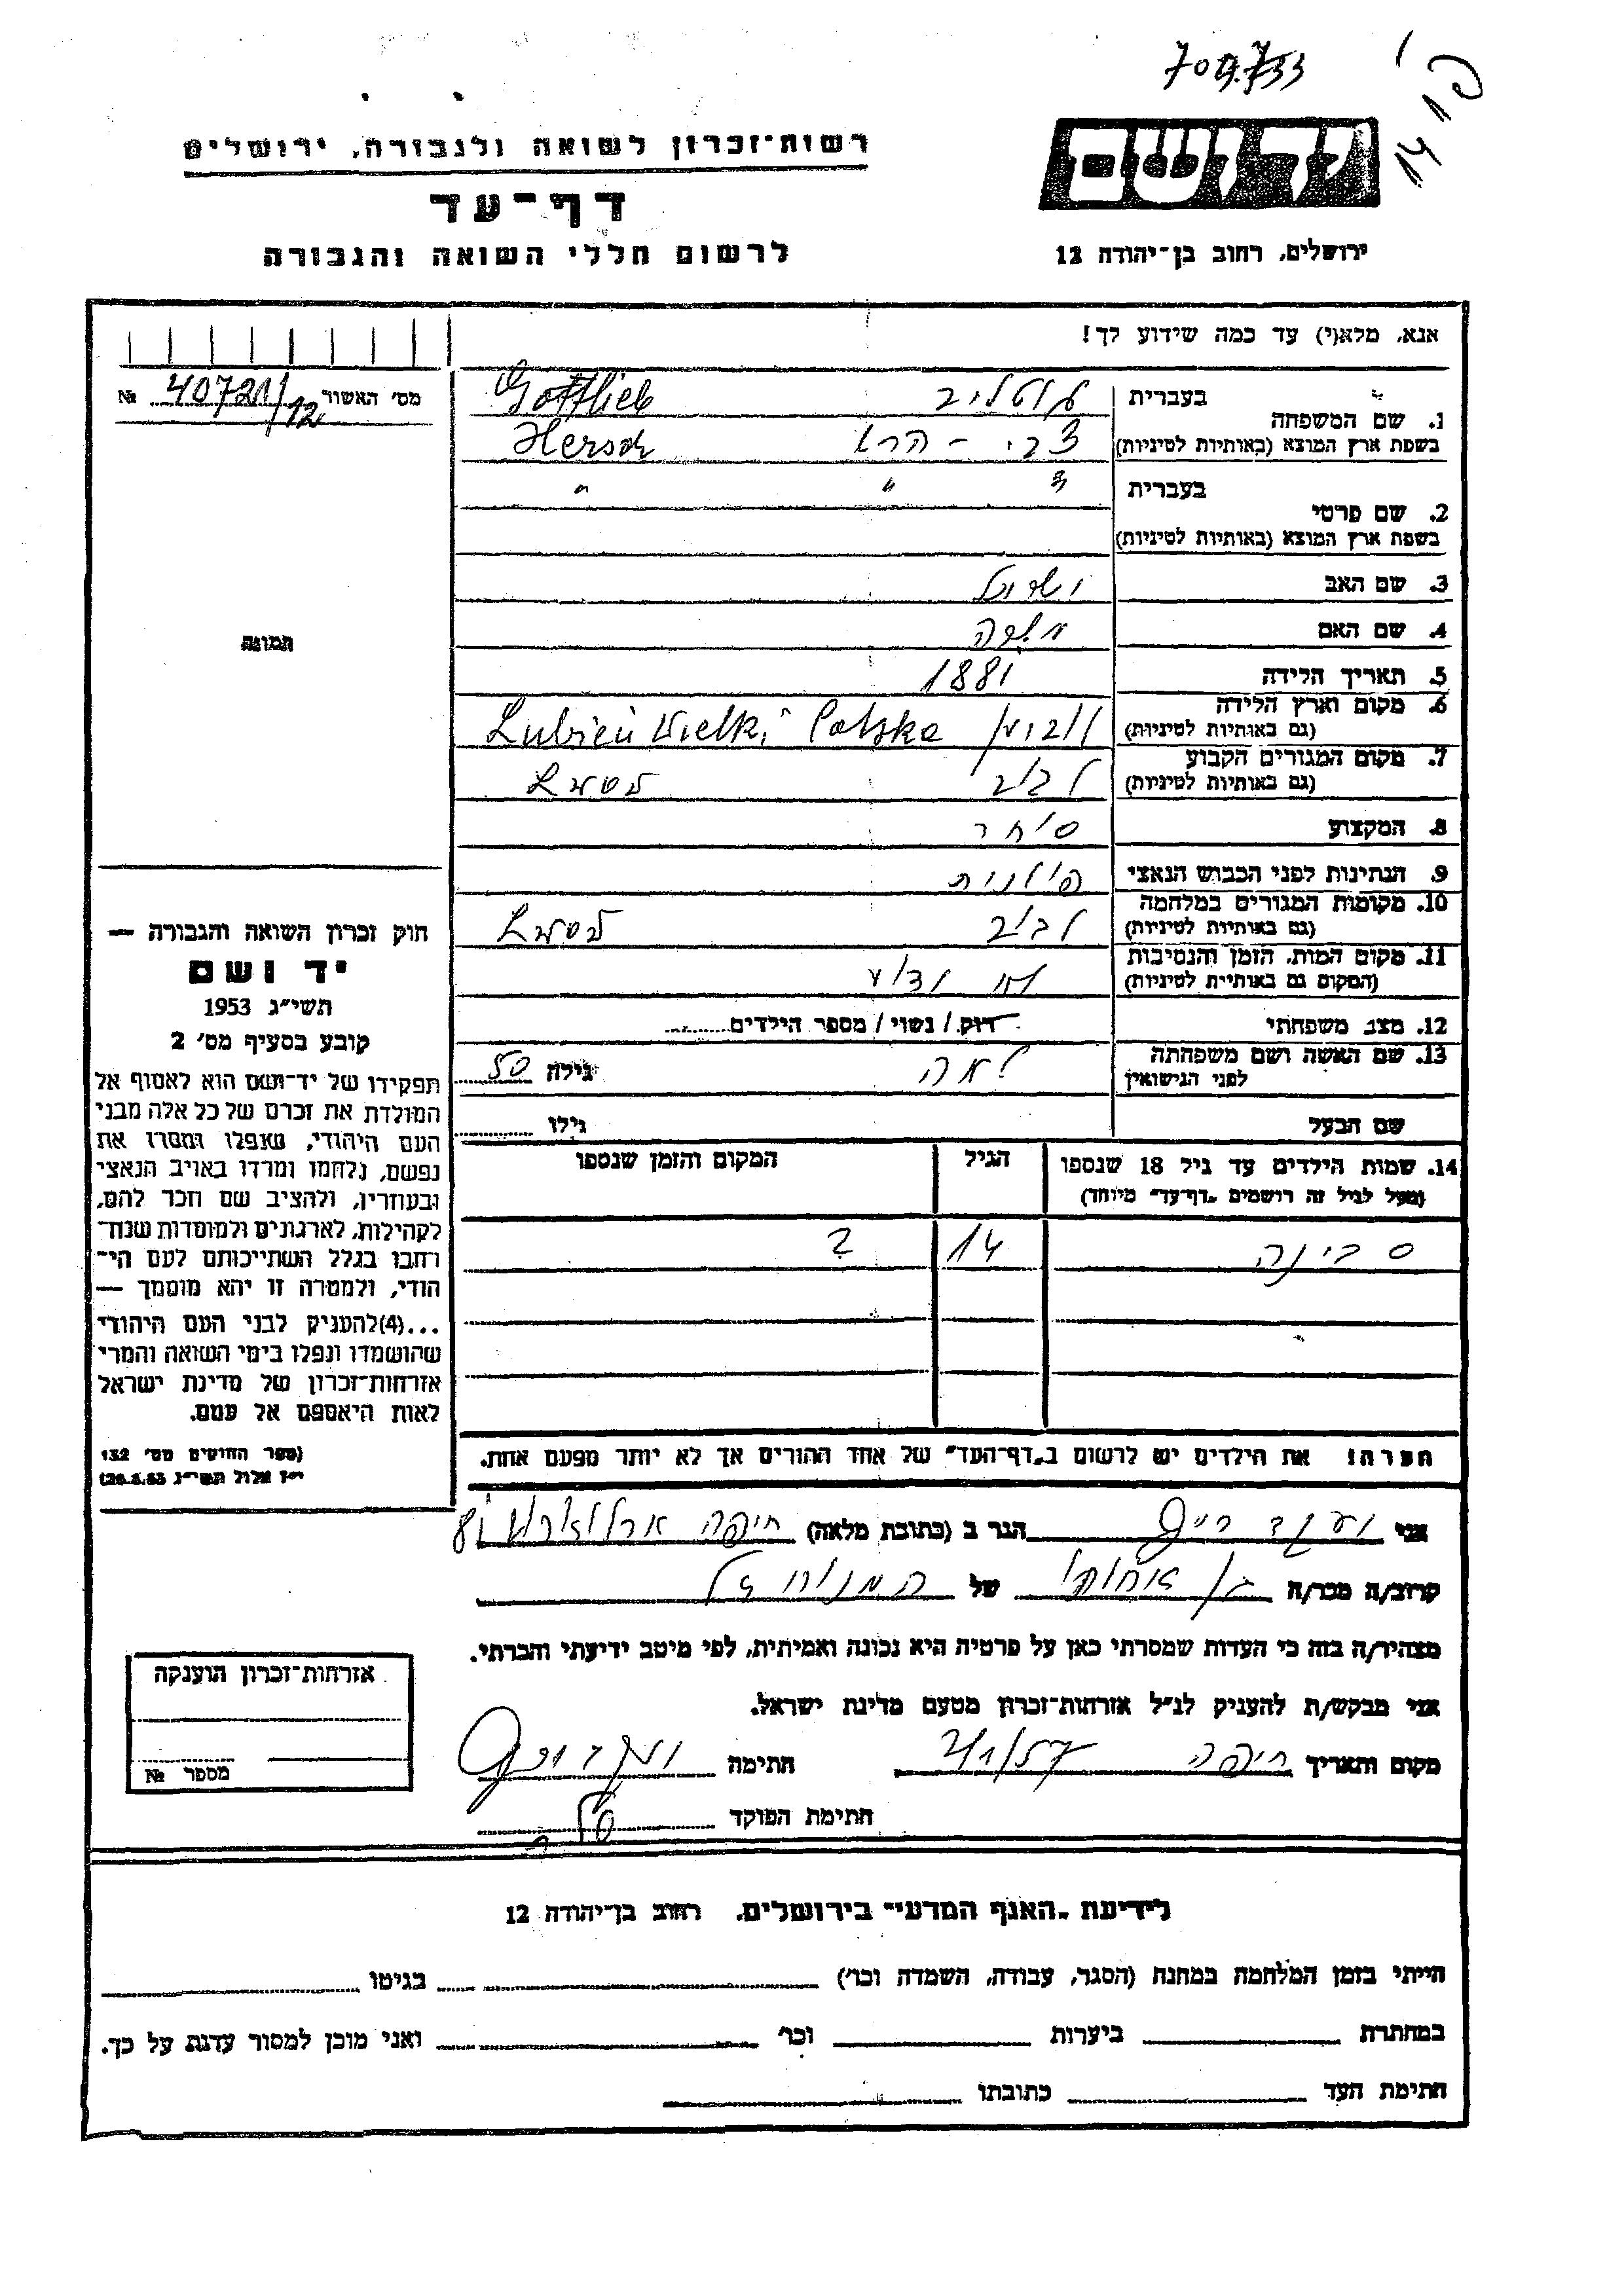 709.733
יד ושם
רשות־זכרון לשואה ולגבורה, ירושלים
דף־עד
לרשום חללי השואה והגבורה
ירושלים, רחוב בן־יהודה 12
אנא, מלא(י) עד כמה שידוע לך!
מס׳ האשור 40721/12 №
1. שם המשפחה
בעברית גוטליב Gottlieb
בשפת ארץ המוצא (באותיות לטיניות) צבי - הרש Hersch
2. שם פרטי
בעברית " " "
בשפת ארץ המוצא (באותיות לטיניות)
3. שם האב ישראל
4. שם האם
5. תאריך הלידה 1881
6. מקום וארץ הלידה
(גם באותיות לטיניות) Lubień Wielki Polska
7. מקום המגורים הקבוע
(גם באותיות לטיניות) לבוב
8. המקצוע סוחר
9. הנתינות לפני הכבוש הנאצי פולנית
10. מקומות המגורים במלחמה
(גם באותיות לטיניות) לבוב
11. מקום המות, הזמן והנסיבות
(המקום גם באותיות לטיניות) לא ידוע
12. מצב משפחתי רווק / נשוי / מספר הילדים
13. שם האשה ושם משפחתה
לפני הנישואין לאה גילה 50
שם הבעל גילו
14. שמות הילדים עד גיל 18 שנספו הגיל המקום והזמן שנספו
(מעל לגיל זה רושמים „דף־עד” מיוחד)
סבינה 14 ?
הערה! את הילדים יש לרשום ב„דף־העד” של אחד ההורים אך לא יותר מפעם אחת.
תמונה
חוק זכרון השואה והגבורה —
יד ושם
תשי״ג 1953
קובע בסעיף מס׳ 2
תפקידו של יד־ושם הוא לאסוף אל
המולדת את זכרם של כל אלה מבני
העם היהודי, שנפלו ומסרו את
נפשם, נלחמו ומרדו באויב הנאצי
ובעוזריו, ולהציב שם וזכר להם,
לקהילות, לארגונים ולמוסדות שנח־
רבו בגלל השתייכותם לעם הי־
הודי, ולמטרה זו יהא מוסמך —
...(4)להעניק לבני העם היהודי
שהושמדו ונפלו בימי השואה והמרי
אזרחות־זכרון של מדינת ישראל
לאות היאספם אל עמם.
(ספר החוקים מס׳ 132
י״ז אלול תשי״ג 28.8.53)
אני הגר ב (כתובת מלאה) חיפה ארלוזורוב
קרוב/ה מכר/ה בן אחותו של המנוח
מצהיר/ה בזה כי העדות שמסרתי כאן על פרטיה היא נכונה ואמיתית, לפי מיטב ידיעתי והכרתי.
אני מבקש/ת להעניק לנ״ל אזרחות־זכרון מטעם מדינת ישראל.
מקום ותאריך חיפה חתימה
חתימת הפוקד
אזרחות־זכרון הוענקה
מספר №
לידיעת „האגף המדעי” בירושלים, רחוב בן־יהודה 12
הייתי בזמן המלחמה במחנה (הסגר, עבודה, השמדה וכו׳) בגיטו
במחתרת ביערות וכו׳ ואני מוכן למסור עדות על כך.
חתימת העד כתובתו